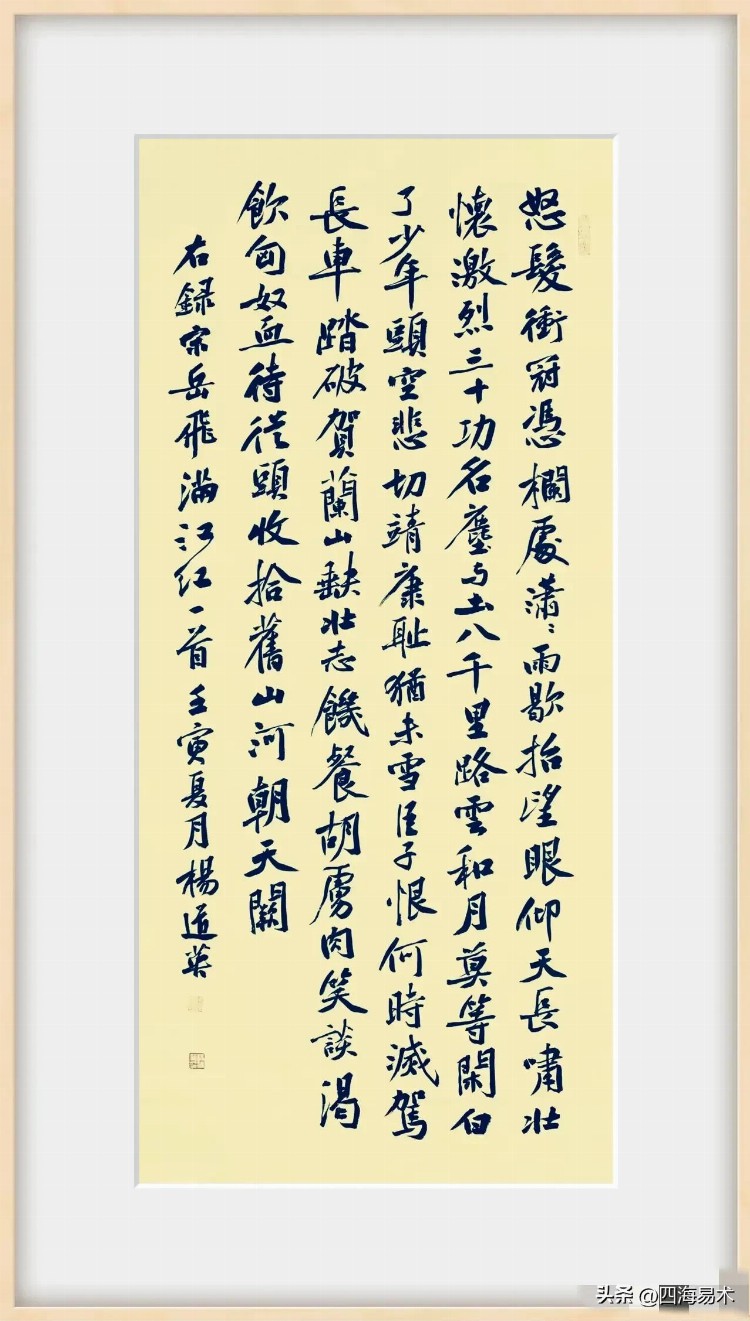 怒髮衝冠憑欄處瀟〻雨歇抬望眼仰天長嘯壯
懷激烈三十功名塵与土八千里路雲和月莫等閑白
了少年頭空悲切靖康耻猶未雪臣子恨何時滅駕
長車踏破賀蘭山缺壯志饑餐胡虜肉笑談渴
飲匈奴血待從頭收拾舊山河朝天闕
右録宋岳飛滿江红一首壬寅夏月楊道英
头条 @四海易术